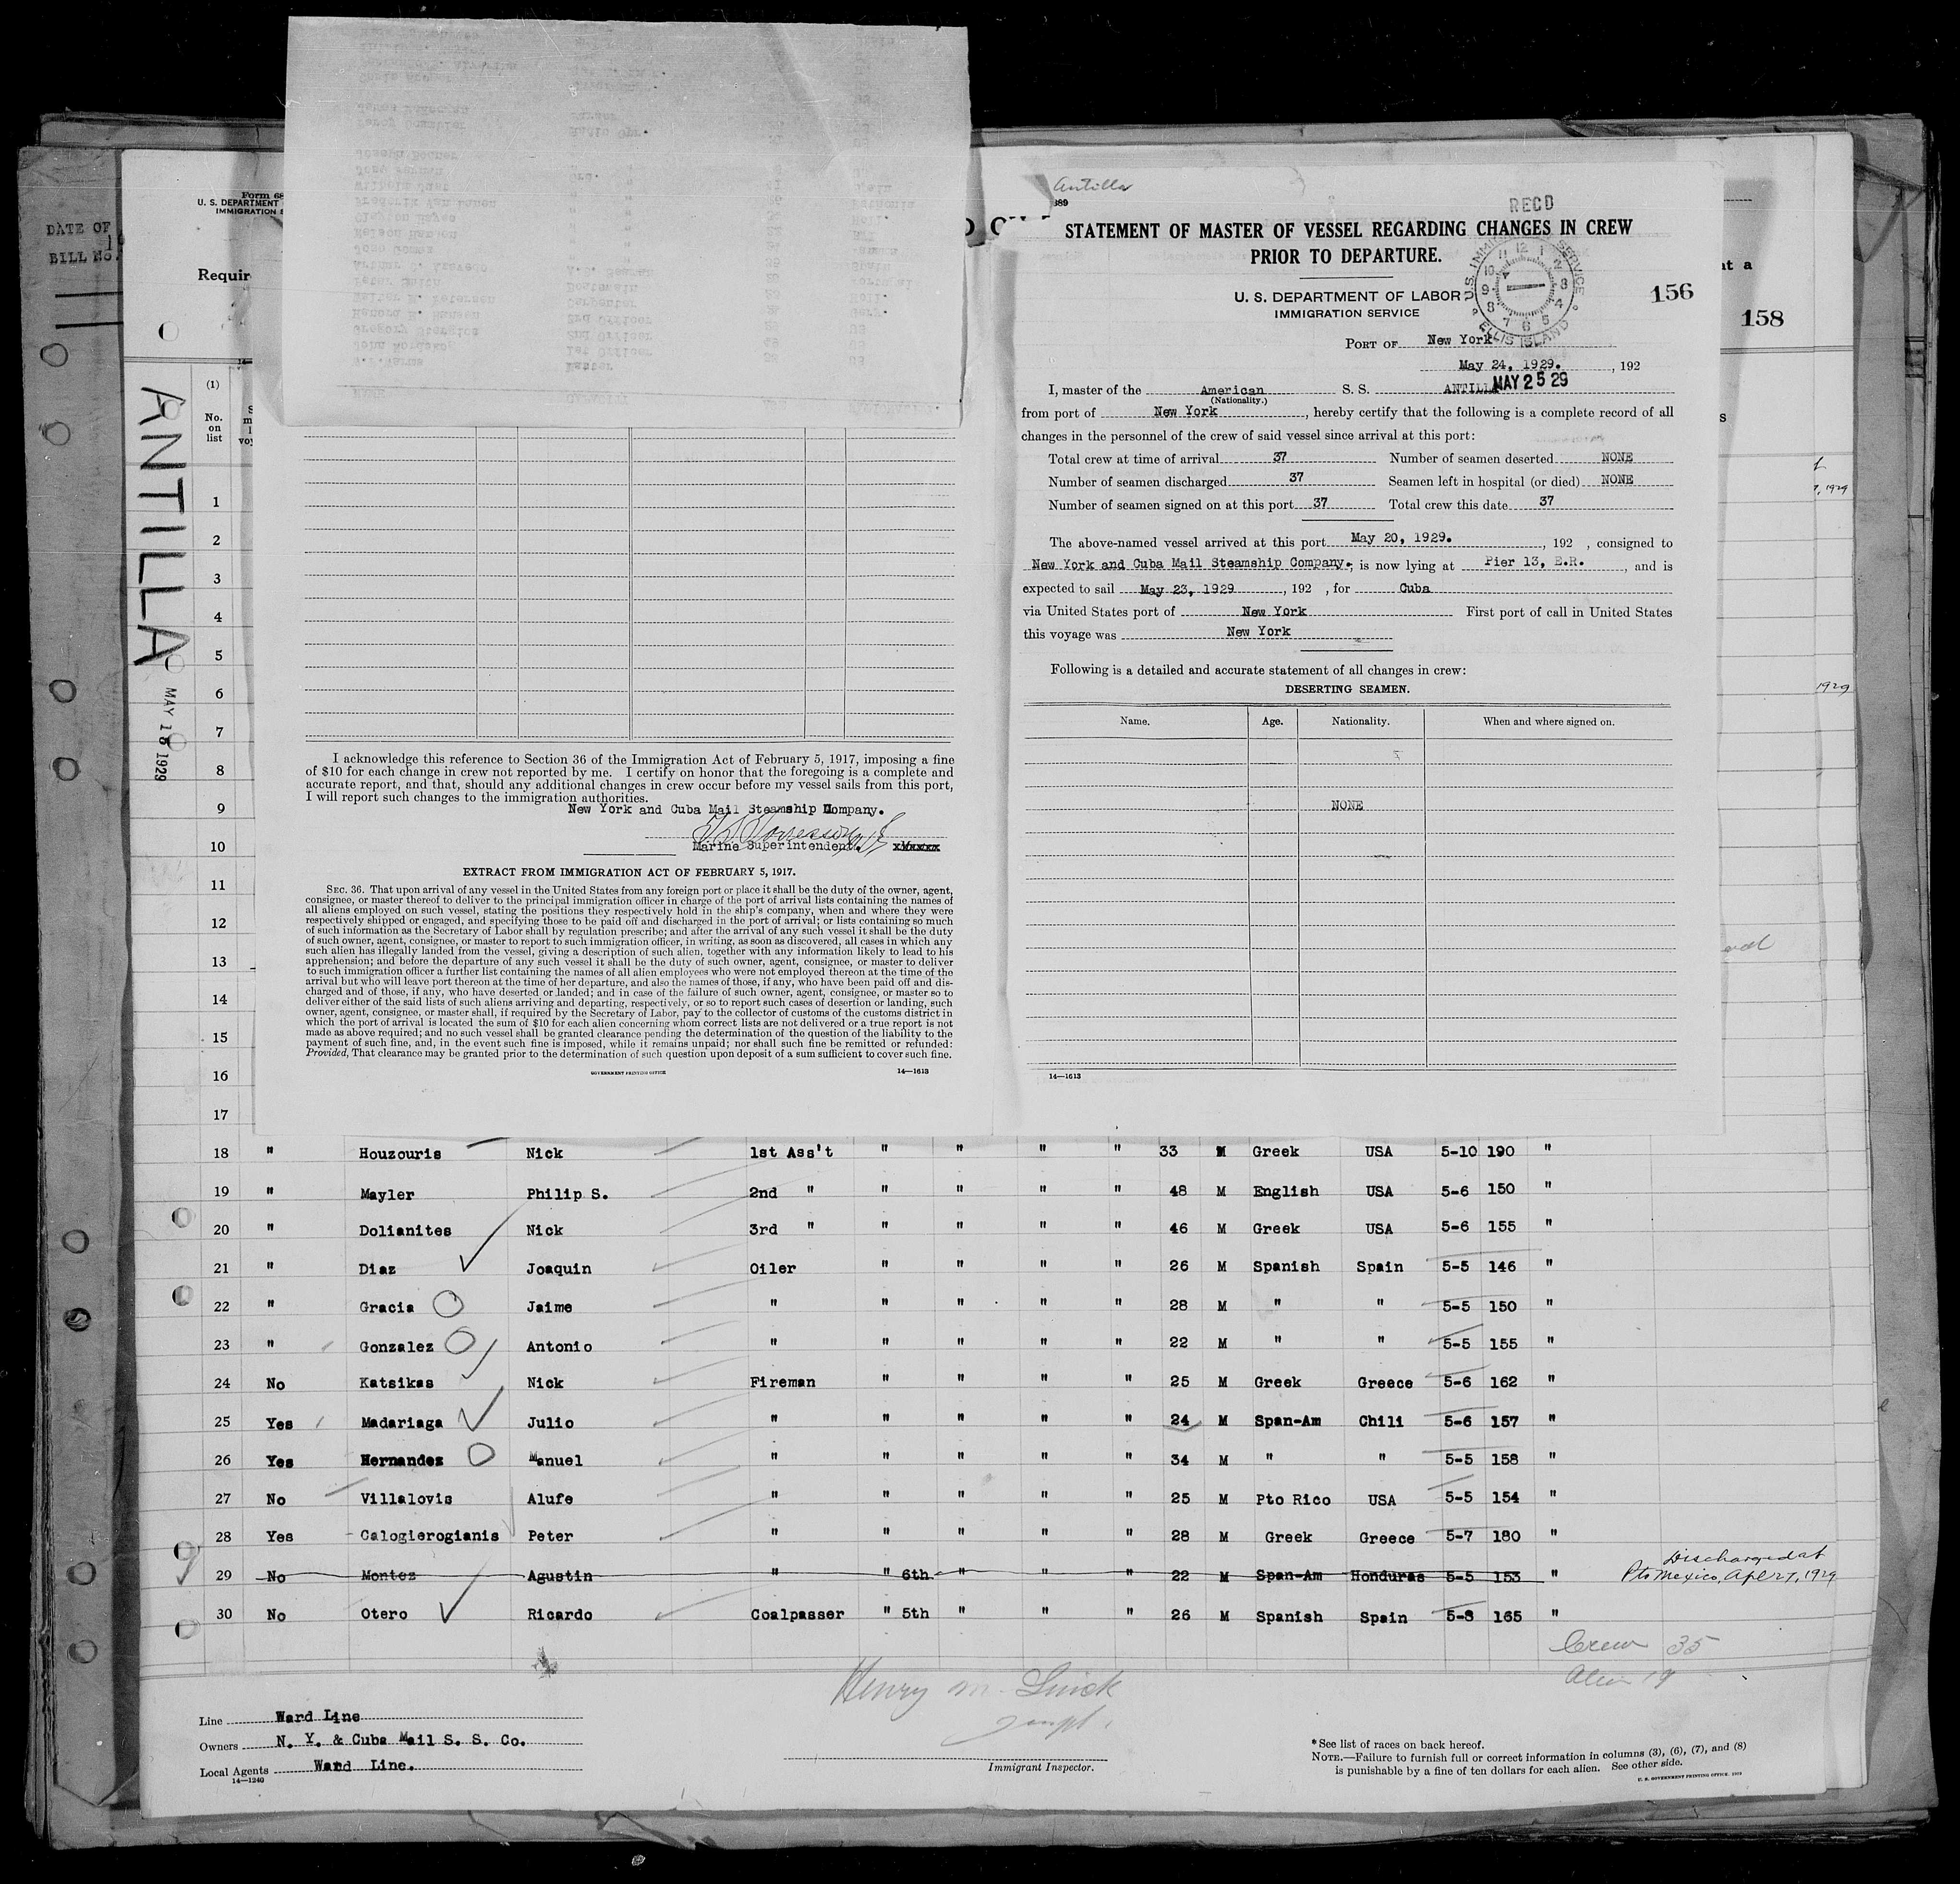 DATE OF
BILL NO.
Form 68
U. S. DEPARTMENT
IMMIGRATION S
Requir
ANTILLA
MAY 18 1929
(1)
No.
on
list
1
2
3
4
5
6
7
8
9
10
11
12
13
14
15
16
17
I acknowledge this reference to Section 36 of the Immigration Act of February 5, 1917, imposing a fine
of $10 for each change in crew not reported by me. I certify on honor that the foregoing is a complete and
accurate report, and that, should any additional changes in crew occur before my vessel sails from this port,
I will report such changes to the immigration authorities.
New York and Cuba Mail Steamship Company.
Marine Superintendent.
EXTRACT FROM IMMIGRATION ACT OF FEBRUARY 5, 1917.
SEC. 36. That upon arrival of any vessel in the United States from any foreign port or place it shall be the duty of the owner, agent,
consignee, or master thereof to deliver to the principal immigration officer in charge of the port of arrival lists containing the names of
all aliens employed on such vessel, stating the positions they respectively hold in the ship's company, when and where they were
respectively shipped or engaged, and specifying those to be paid off and discharged in the port of arrival; or lists containing so much
of such information as the Secretary of Labor shall by regulation prescribe; and after the arrival of any such vessel it shall be the duty
of such owner, agent, consignee, or master to report to such immigration officer, in writing, as soon as discovered, all cases in which any
such alien has illegally landed from the vessel, giving a description of such alien, together with any information likely to lead to his
apprehension; and before the departure of any such vessel it shall be the duty of such owner, agent, consignee, or master to deliver
to such immigration officer a further list containing the names of all alien employees who were not employed thereon at the time of the
arrival but who will leave port thereon at the time of her departure, and also the names of those, if any, who have been paid off and dis-
charged and of those, if any, who have deserted or landed; and in case of the failure of such owner, agent, consignee, or master so to
deliver either of the said lists of such aliens arriving and departing, respectively, or so to report such cases of desertion or landing, such
owner, agent, consignee, or master shall, if required by the Secretary of Labor, pay to the collector of customs of the customs district in
which the port of arrival is located the sum of $10 for each alien concerning whom correct lists are not delivered or a true report is not
made as above required; and no such vessel shall be granted clearance pending the determination of the question of the liability to the
payment of such fine, and, in the event such fine is imposed, while it remains unpaid; nor shall such fine be remitted or refunded:
Provided, That clearance may be granted prior to the determination of such question upon deposit of a sum sufficient to cover such fine.
GOVERNMENT PRINTING OFFICE 14—1613
Antilla
689
RECD
STATEMENT OF MASTER OF VESSEL REGARDING CHANGES IN CREW
PRIOR TO DEPARTURE.
U. S. DEPARTMENT OF LABOR
IMMIGRATION SERVICE
U.S. IMMIGRATION SERVICE
ELLIS ISLAND
12 1 2 3 4 5 6 7 8 9 10 11
156
at a
158
PORT OF New York
May 24, 1929. , 192
MAY 25 29
I, master of the American S. S. ANTILLA
(Nationality.)
from port of New York , hereby certify that the following is a complete record of all
changes in the personnel of the crew of said vessel since arrival at this port:
Total crew at time of arrival 37 Number of seamen deserted NONE
Number of seamen discharged 37 Seamen left in hospital (or died) NONE
Number of seamen signed on at this port 37 Total crew this date 37
The above-named vessel arrived at this port May 20, 1929. , 192 , consigned to
New York and Cuba Mail Steamship Company. ; is now lying at Pier 13, E.R. , and is
expected to sail May 23, 1929 , 192 , for Cuba
via United States port of New York First port of call in United States
this voyage was New York
Following is a detailed and accurate statement of all changes in crew:
DESERTING SEAMEN.
Name. Age. Nationality. When and where signed on.
NONE
14—1613
, 1929
1929
18 " Houzouris Nick 1st Ass't " " " " 33 M Greek USA 5-10 190 "
19 " Mayler Philip S. 2nd " " " " " 48 M English USA 5-6 150 "
20 " Dolianites Nick 3rd " " " " " 46 M Greek USA 5-6 155 "
21 " Diaz Joaquin Oiler " " " " 26 M Spanish Spain 5-5 146 "
22 " Gracia Jaime " " " " " 28 M " " 5-5 150 "
23 " Gonzalez Antonio " " " " " 22 M " " 5-5 155 "
24 No Katsikas Nick Fireman " " " " 25 M Greek Greece 5-6 162 "
25 Yes Madariaga Julio " " " " " 24 M Span-Am Chili 5-6 157 "
26 Yes Hernandez Manuel " " " " " 34 M " " 5-5 158 "
27 No Villalovis Alufe " " " " " 25 M Pto Rico USA 5-5 154 "
28 Yes Calogierogianis Peter " " " " " 28 M Greek Greece 5-7 180 "
29 No Montez Agustin " " 6th " " " 22 M Span-Am Honduras 5-5 153 " Discharged at Pto Mexico, Apl 27, 1929
30 No Otero Ricardo Coalpasser " 5th " " " 26 M Spanish Spain 5-8 165 "
Crew 35
Alien 19
Henry M.
Line Ward Line
Owners N. Y. & Cuba Mail S. S. Co.
Local Agents Ward Line.
14—1240
Immigrant Inspector.
*See list of races on back hereof.
NOTE.—Failure to furnish full or correct information in columns (3), (6), (7), and (8)
is punishable by a fine of ten dollars for each alien. See other side.
U. S. GOVERNMENT PRINTING OFFICE